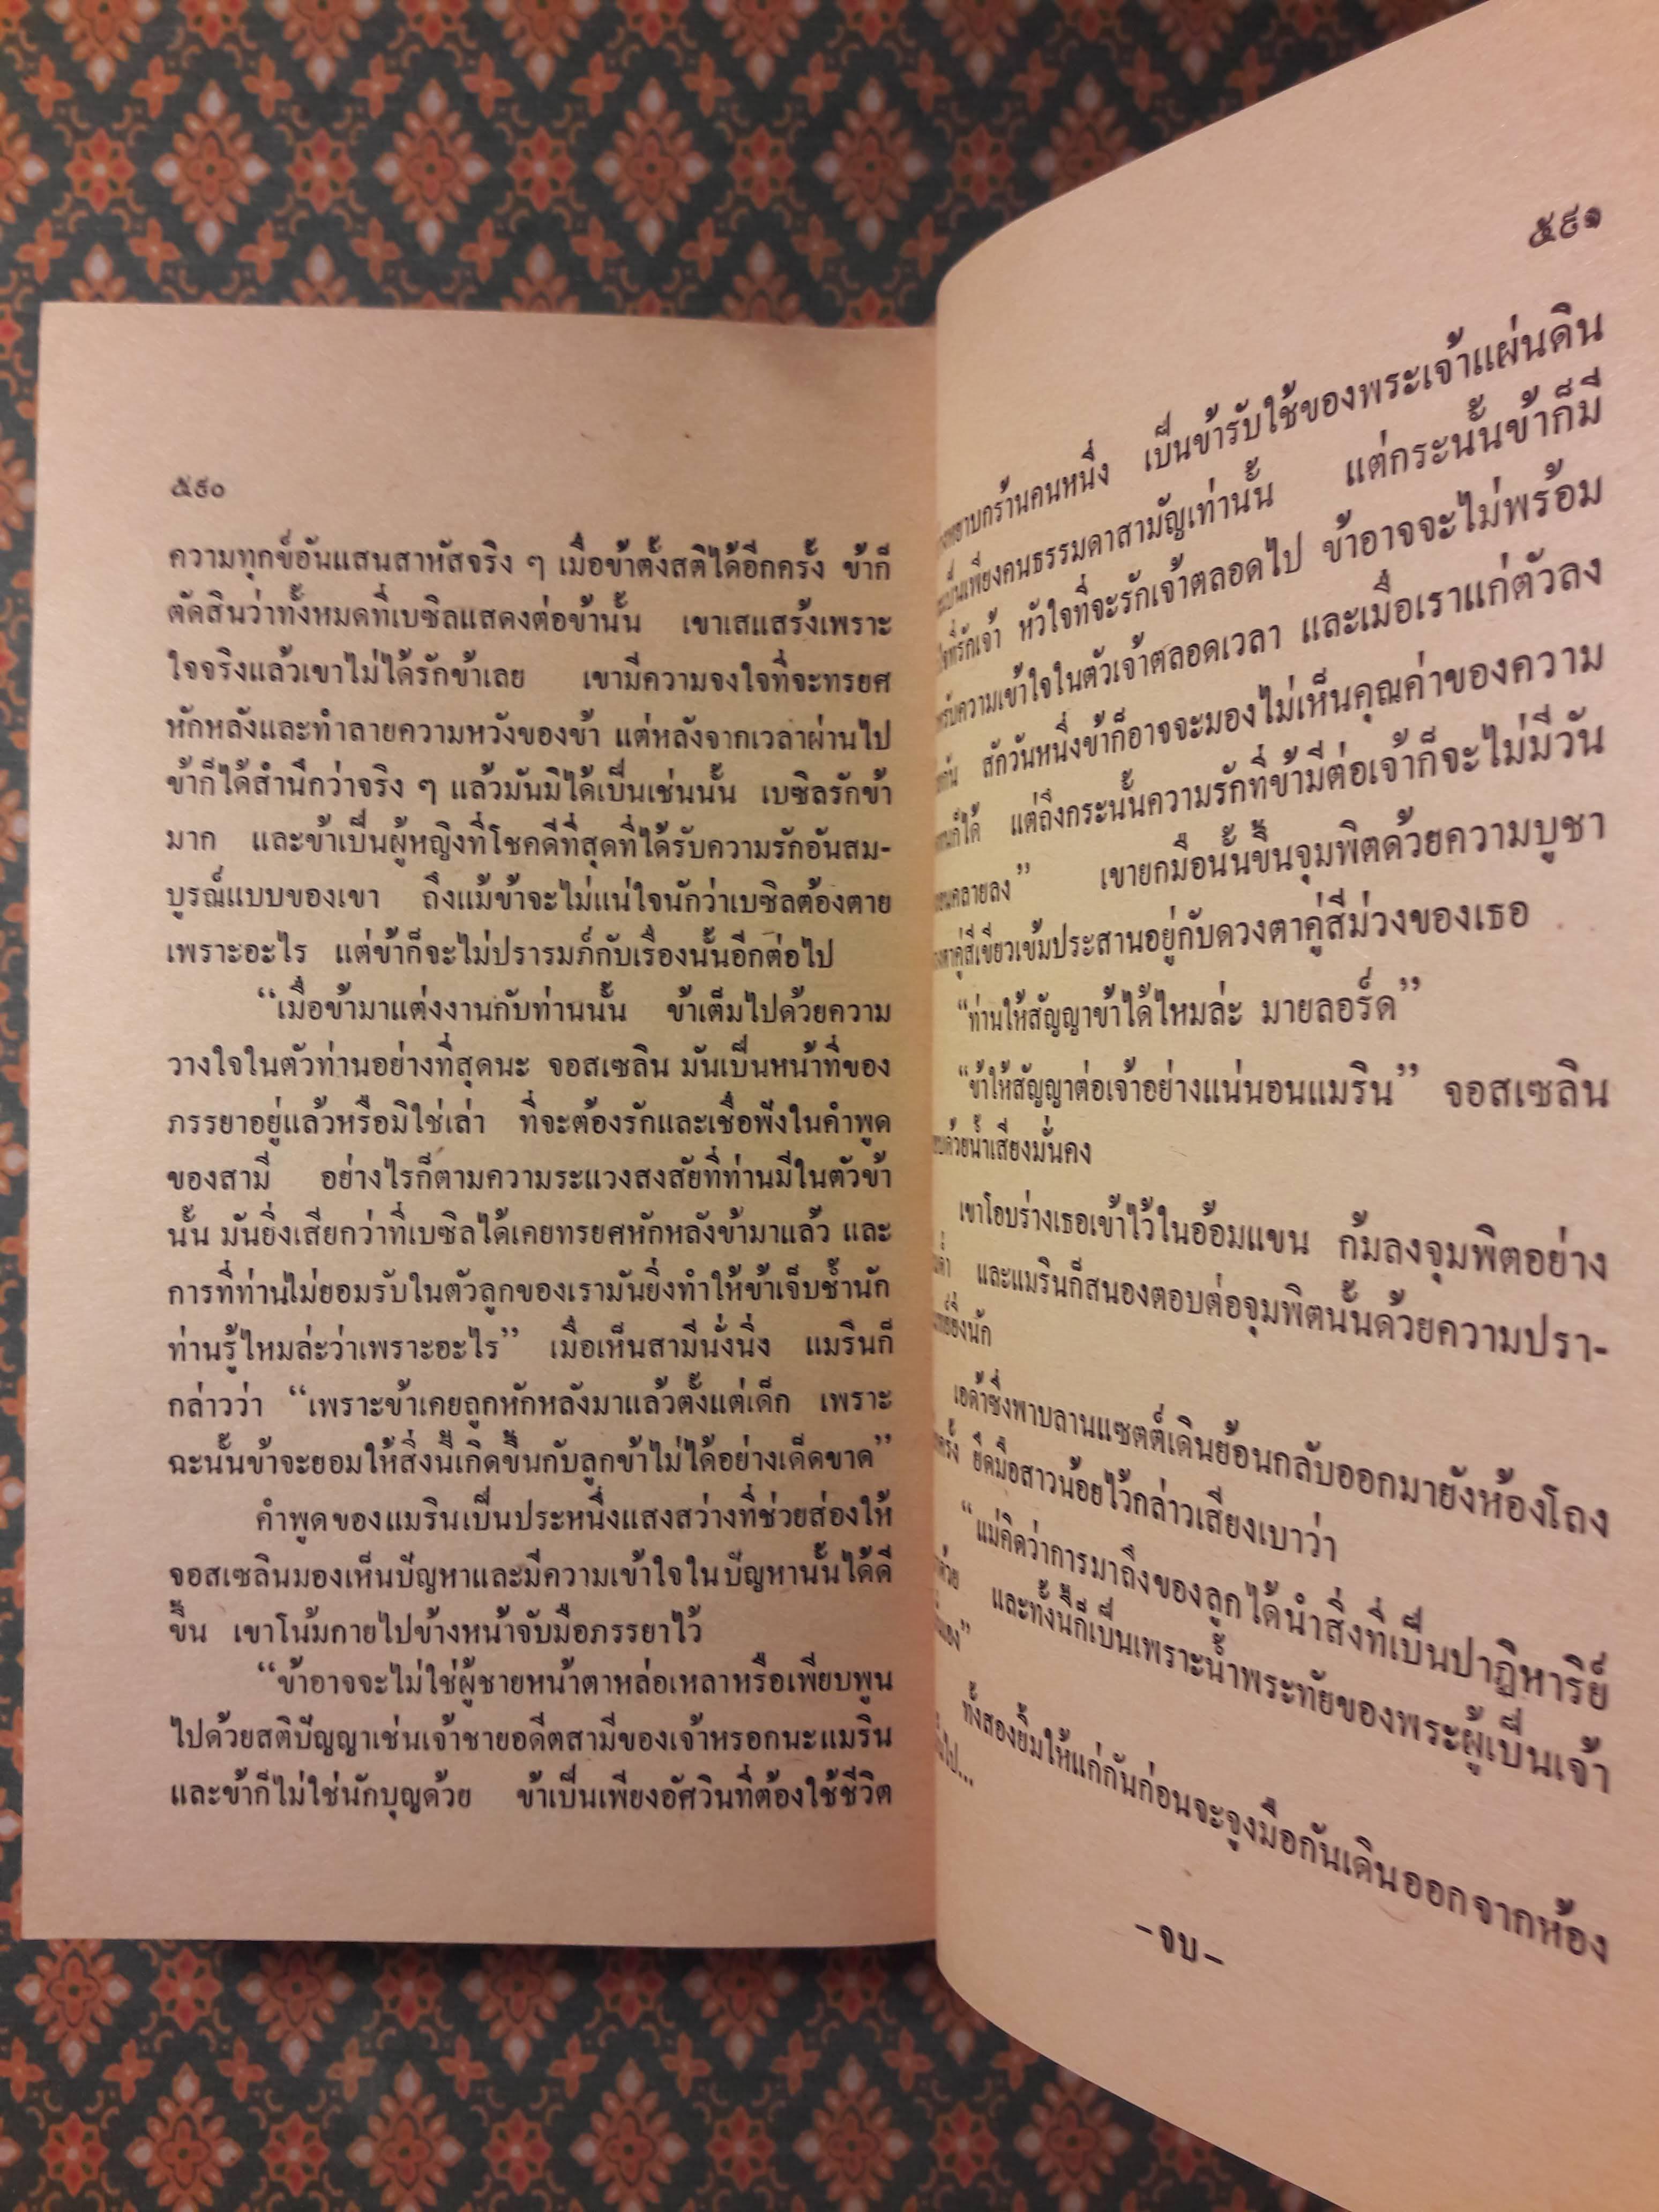 ๕๙๐
ความทุกข์อันแสนสาหัสจริง ๆ เมื่อข้าตั้งสติได้อีกครั้ง ข้าก็
ตัดสินว่าทั้งหมดที่เบซิลแสดงต่อข้านั้น เขาเสแสร้งเพราะ
ใจจริงแล้วเขาไม่ได้รักข้าเลย เขามีความจงใจที่จะทรยศ
หักหลังและทำลายความหวังของข้า แต่หลังจากเวลาผ่านไป
ข้าก็ได้สำนึกว่าจริง ๆ แล้วมันมิได้เป็นเช่นนั้น เบซิลรักข้า
มาก และข้าเป็นผู้หญิงที่โชคดีที่สุดที่ได้รับความรักอันสม-
บูรณ์แบบของเขา ถึงแม้ข้าจะไม่แน่ใจนักว่าเบซิลต้องตาย
เพราะอะไร แต่ข้าก็จะไม่ปรารมภ์กับเรื่องนั้นอีกต่อไป
“เมื่อข้ามาแต่งงานกับท่านนั้น ข้าเต็มไปด้วยความ
วางใจในตัวท่านอย่างที่สุดนะ จอสเซลิน มันเป็นหน้าที่ของ
ภรรยาอยู่แล้วหรือมิใช่เล่า ที่จะต้องรักและเชื่อฟังในคำพูด
ของสามี อย่างไรก็ตามความระแวงสงสัยที่ท่านมีในตัวข้า
นั้น มันยิ่งเสียกว่าที่เบซิลได้เคยทรยศหักหลังข้ามาแล้ว และ
การที่ท่านไม่ยอมรับในตัวลูกของเรามันยิ่งทำให้ข้าเจ็บช้ำนัก
ท่านรู้ไหมล่ะว่าเพราะอะไร” เมื่อเห็นสามีนั่งนิ่ง แมรินก็
กล่าวว่า “เพราะข้าเคยถูกหักหลังมาแล้วตั้งแต่เด็ก เพราะ
ฉะนั้นข้าจะยอมให้สิ่งนี้เกิดขึ้นกับลูกข้าไม่ได้อย่างเด็ดขาด”
คำพูดของแมรินเป็นประหนึ่งแสงสว่างที่ช่วยส่องให้
จอสเซลินมองเห็นปัญหาและมีความเข้าใจในปัญหานั้นได้ดี
ขึ้น เขาโน้มกายไปข้างหน้าจับมือภรรยาไว้
“ข้าอาจจะไม่ใช่ผู้ชายหน้าตาหล่อเหลาหรือเพียบพูน
ไปด้วยสติปัญญาเช่นเจ้าชายอดีตสามีของเจ้าหรอกนะแมริน
และข้าก็ไม่ใช่นักบุญด้วย ข้าเป็นเพียงอัศวินที่ต้องใช้ชีวิต
๕๙๑
หยาบกร้านคนหนึ่ง เป็นข้ารับใช้ของพระเจ้าแผ่นดิน
เป็นเพียงคนธรรมดาสามัญเท่านั้น แต่กระนั้นข้าก็มี
ที่รักเจ้า หัวใจที่จะรักเจ้าตลอดไป ข้าอาจจะไม่พร้อม
ความเข้าใจในตัวเจ้าตลอดเวลา และเมื่อเราแก่ตัวลง
สักวันหนึ่งข้าก็อาจจะมองไม่เห็นคุณค่าของความ
ก็ได้ แต่ถึงกระนั้นความรักที่ข้ามีต่อเจ้าก็จะไม่มีวัน
คลายลง” เขายกมือนั้นขึ้นจุมพิตด้วยความบูชา
ตาคู่สีเขียวเข้มประสานอยู่กับดวงตาคู่สีม่วงของเธอ
“ท่านให้สัญญาข้าได้ไหมล่ะ มายลอร์ด”
“ข้าให้สัญญาต่อเจ้าอย่างแน่นอนแมริน” จอสเซลิน
ด้วยน้ำเสียงมั่นคง
เขาโอบร่างเธอเข้าไว้ในอ้อมแขน ก้มลงจุมพิตอย่าง
และแมรินก็สนองตอบต่อจุมพิตนั้นด้วยความปรา-
ยิ่งนัก
เอด้าซึ่งพาบลานแชตต์เดินย้อนกลับออกมายังห้องโถง
ยึดมือสาวน้อยไว้กล่าวเสียงเบาว่า
“แม่คิดว่าการมาถึงของลูกได้นำสิ่งที่เป็นปาฏิหาริย์
ด้วย และทั้งนี้ก็เป็นเพราะน้ำพระทัยของพระผู้เป็นเจ้า
ทั้งสองยิ้มให้แก่กันก่อนจะจูงมือกันเดินออกจากห้อง
ไป...
–จบ–